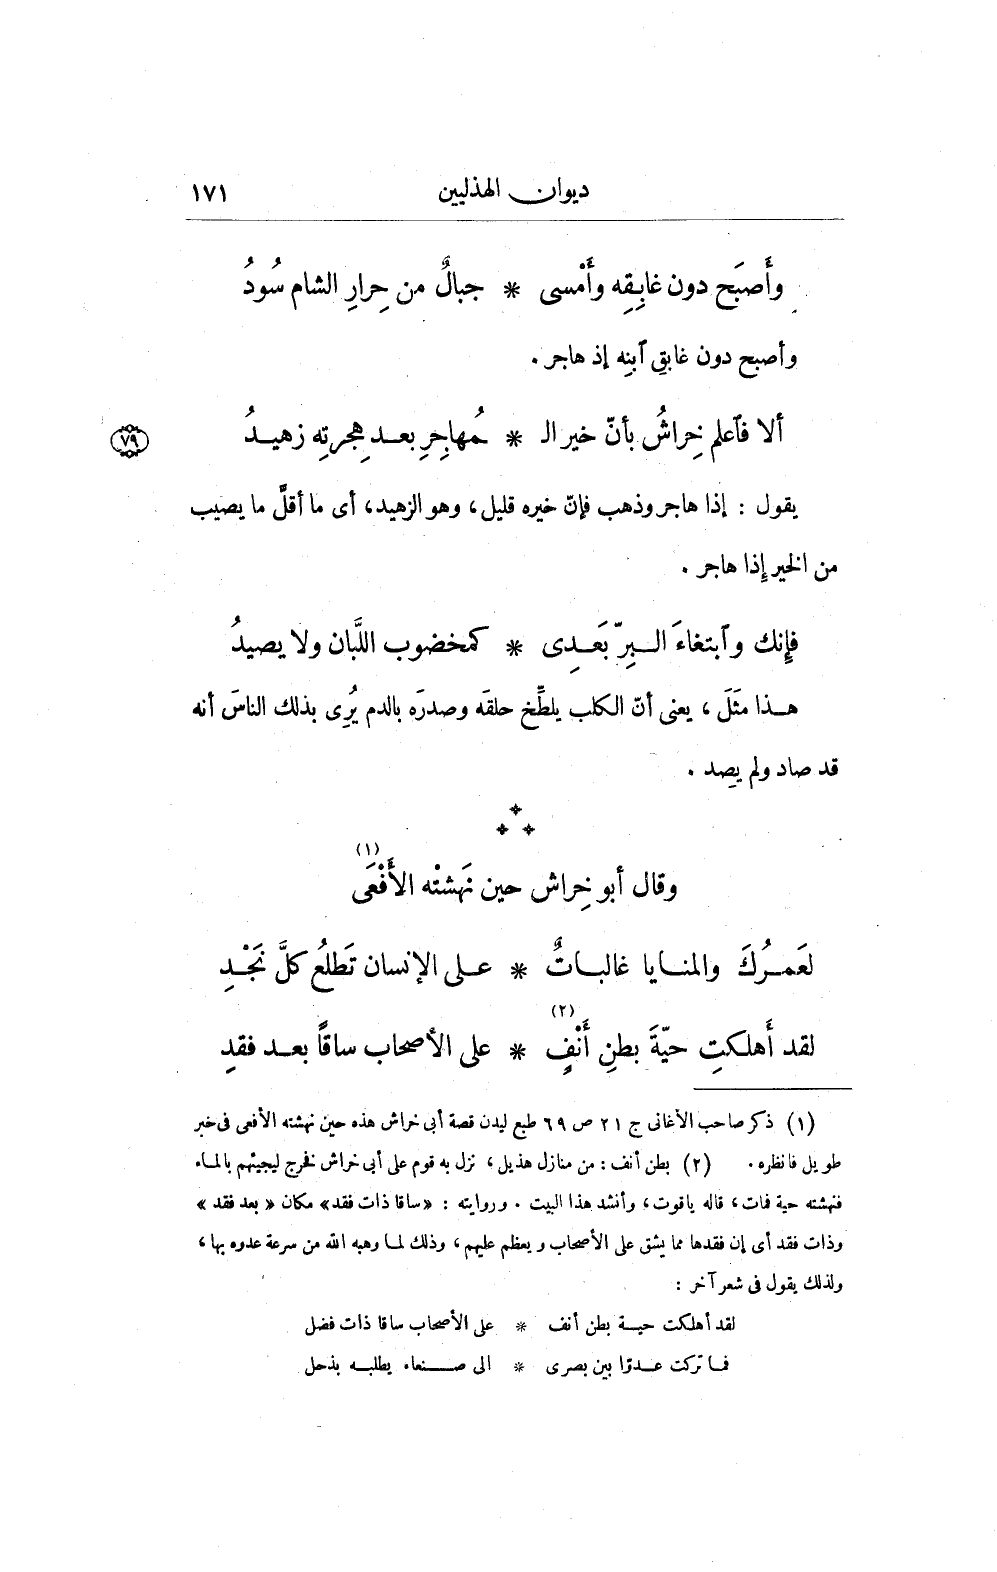 ديوان الهذليين ١٧١
وأَصبَح دون غابِقِه وأَمْسى * جبالٌ من حِرارِ الشام سُودُ
وأصبح دون غابقِ ٱبنِه إذ هاجر .
ألا فٱعلم خِراشُ بأنّ خير الـ * ـمُهاجِرِ بعـد هِجرتِه زهيـدُ
٧٩
يقول : إذا هاجر وذهب فإنّ خيره قليل، وهو الزهيد، أى ما أقلَّ ما يصيب
من الخير إذا هاجر .
فإِنك وٱبتغاءَ البِرّ بَعدِى * كمخضوب اللَّبان ولا يصيدُ
هـذا مثَلَ ، يعنى أنّ الكلب يلطِّخ حلقَه وصدرَه بالدم يُرِى بذلك الناسَ أنه
قد صاد ولم يصِد .
وقال أبو خِراش حين نَهشتْه الأَفْعَى (١)
لعَمـرُكَ والمنـايا غالبـاتٌ * علـى الإنسان تَطلُع كلَّ نَجْـدِ
لقد أَهلكتِ حيّةَ بطنِ أَنْفٍ (٢) * على الأصحاب ساقًا بعـد فقدِ
(١) ذكر صاحب الأغانى ج ٢١ ص ٦٩ طبع ليدن قصة أبى خراش هذه حين نهشته الأفعى فى خبر
طويل فانظره . (٢) بطن أنف : من منازل هذيل، نزل به قوم على أبى خراش فخرج ليجيئهم بالماء
فنهشته حية فمات، قاله ياقوت، وأنشد هذا البيت . وروايته : «ساقا ذات فقد» مكان «بعد فقد»
وذات فقد أى إن فقدها مما يشق على الأصحاب ويعظم عليهم، وذلك لما وهبه الله من سرعة عدوه بها،
ولذلك يقول فى شعر آخر :
لقد أهلكت حيـة بطن أنف * على الأصحاب ساقا ذات فضل
فمـا تركت عـدوّا بين بصرى * الى صنعاء يطلبـه بذحل